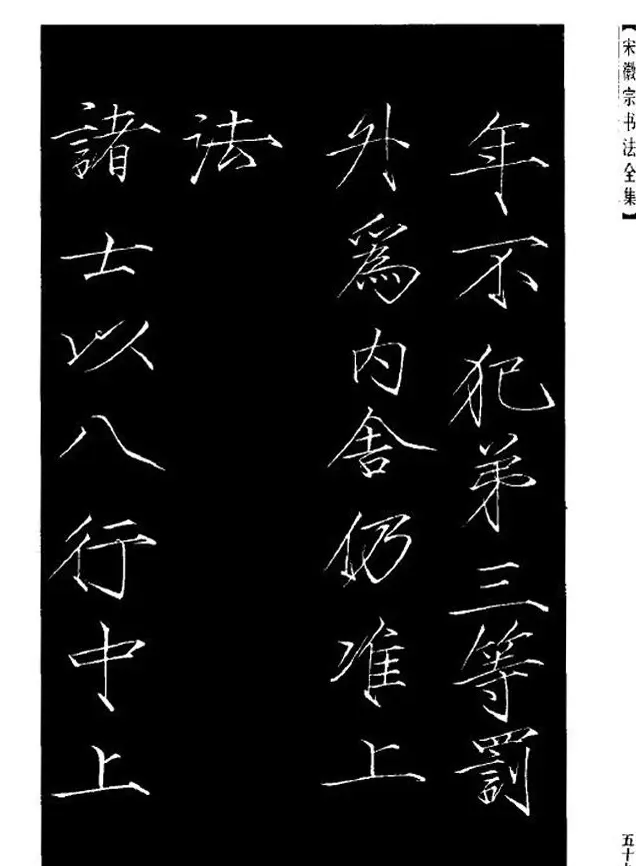 【宋徽宗书法全集】
年不犯弟三等罰
外爲内舍仍准上
法
諸士以八行中上
五十